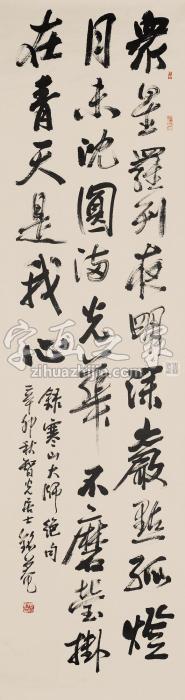 衆星羅列夜明深巖點孤燈
月未沈圓滿光華不磨瑩掛
在青天是我心
錄寒山大師絕句
辛卯秋智光居士
字画之家
zihuazhijia.com